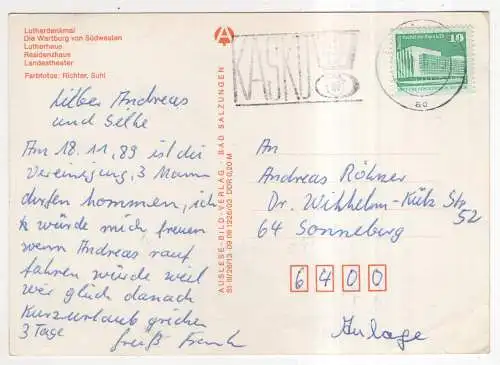 Lutherdenkmal
Die Wartburg von Südwesten
Lutherhaus
Residenzhaus
Landestheater
Farbfotos: Richter, Suhl
Lieber Andreas
und Silke
Am 18.11.89 ist die
Vereinigung, 3 Mann
dürfen kommen, ich
würde mich freuen
wenn Andreas rauf
fahren würde weil
wir glich danach
Kurzurlaub griechen
3 Tage
Greuß Frank
AUSLESE-BILD-VERLAG · BAD SALZUNGEN
DDR 0,20 M
KASKO
10
An
Andreas Röhner
Dr. Wihhelm-Külz Str
52
64 Sonneberg
6400
Anlage